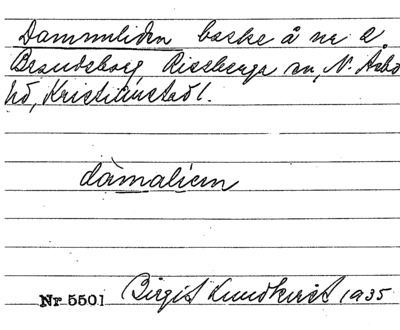 Dammliden backe å nr 2
Brandeborg, Riseberga sn, N. Åsbo
hd, Kristianstad l.
dàmaliern
Nr 5501 Birgit Lundkvist 1935